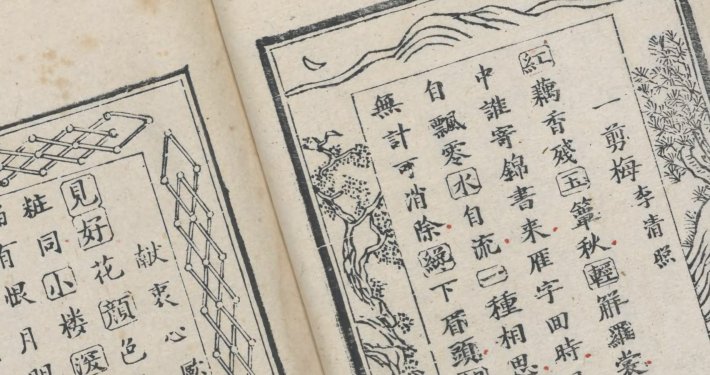 一剪梅 李清照
紅藕香残玉簟秋輕解羅裳
中誰寄錦書来雁字回時
自飄零水自流一種相思
無計可消除纔下眉頭
献衷心 歐
見好花顔色
粧同小楼深
有恨月